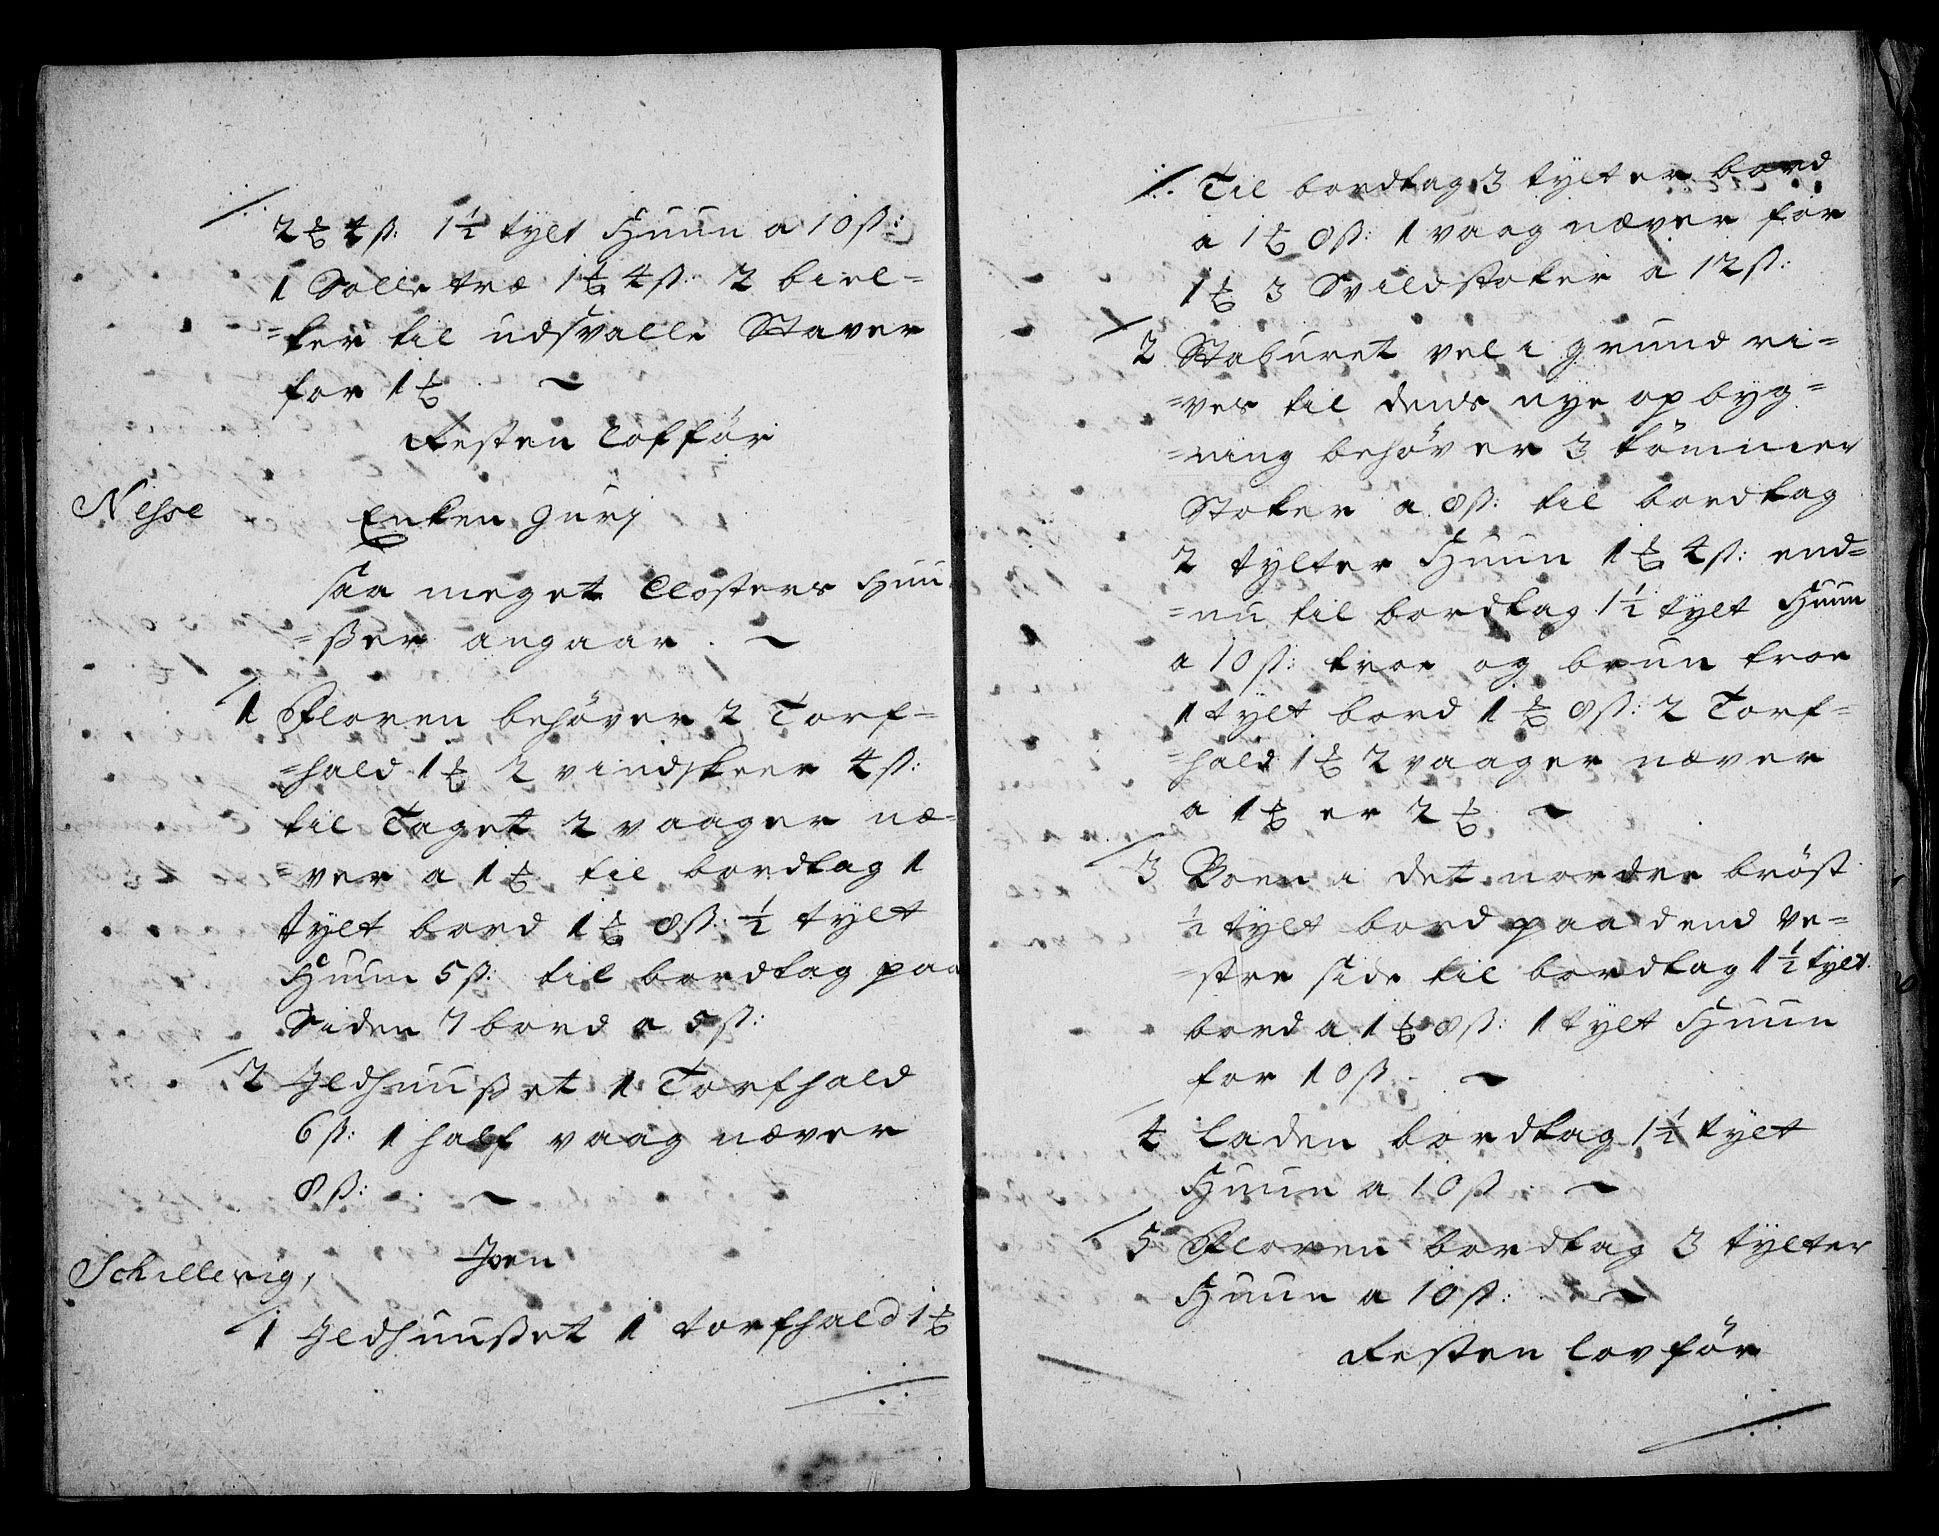 2 ₻ 4 ß: 1½ tylt Huun a 10 ß:
1 Solle træ 1 ₻ 4 ß: 2 biel=
=ker til udsvalle Staver
for 1 ₻
Resten lofför
Nesse Enken gurj
saa meget Closters Huu
=ßer angaar.
1 Floren behöver 2 Torf=
=hald 1 ₻ 2 vindskeer 4 ß:
til Taget 2 vaager næ=
=ver a 1 ₻ til bordtag 1
tylt bord 1 ₻ 8 ß: ½ tylt
Huun 5 ß: til bordtag paa
Siden 7 bord a 5 ß:
2 Jldhuußet 1 Torfhald
6 ß: 1 half vaag næver
8 ß:
Schillevig, Joen
1 Jldhuußet 1 torfhald 1 ₻
Til bordtag 3 tylter bord
a 1 ₻ 8 ß: 1 vaag næver for
1 ₻ 3 Svildstoker a 12 ß:
2 Staburet vel i grund ri=
=ves til dens nye opbyg=
=ning behöver 3 tömmer
Stoker a 8 ß: til bordtag
2 tylter Huun 1 ₻ 4 ß: end=
=nu til bordtag 1½ tylt Huun
a 10 ß: troe og brun troe
1 tylt bord 1 ₻ 8 ß: 2 Torf=
=hald 1 ₻ 2 vaager næver
a 1 ₻ er 2 ₻
3 Boen i det nordre bröst
½ tylt bord paa dend ve=
=stre side til bordtag 1½ tylt
bord a 1 ₻ 8 ß: 1 tylt Huun
for 10 ß
4 laden bordtag 1½ tylt
Huun a 10 ß
5 Floren bordtag 3 tylter
Huun a 10 ß:
Resten lovför